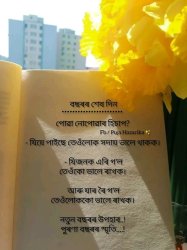 বছৰৰ শেষ দিন
******************
পোৱা নোপোৱাৰ হিচাপ?
Fb/ Puja Hazarika
- যিয়ে পাইছে তেওঁলোক সদায় ভালে থাকক।
- যিজনক এৰি গ'ল
তেওঁকো ভালে ৰাখক।
আৰু যাৰ ৰৈ গ'ল
তেওঁলোককো ভালে ৰাখক।
নতুন বছৰৰ উপহাৰ..!
পুৰণা বছৰৰ স্মৃতি...!